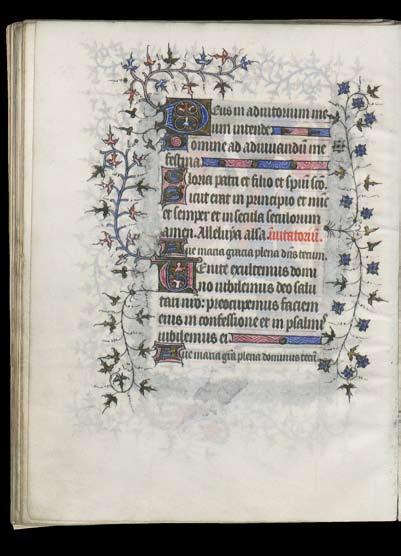 Deus in adiutorium me
um intende
Domine ad adiuuandū me
festina
Gloria patri et filio et spiūi sc̄o.
Sicut erat in principio et nūc
et semper et in secula seculorum
amen. Alleluya alla. Inuitatoriū.
Aue maria gracia plena dn̄s tecum.
Uenite exultemus domi
no iubilemus deo salu
tari nr̄o: preocupemus faciem
eius in confessione et in psalmis
iubilemus ei
Aue maria gr̄a plena dominus tecū.